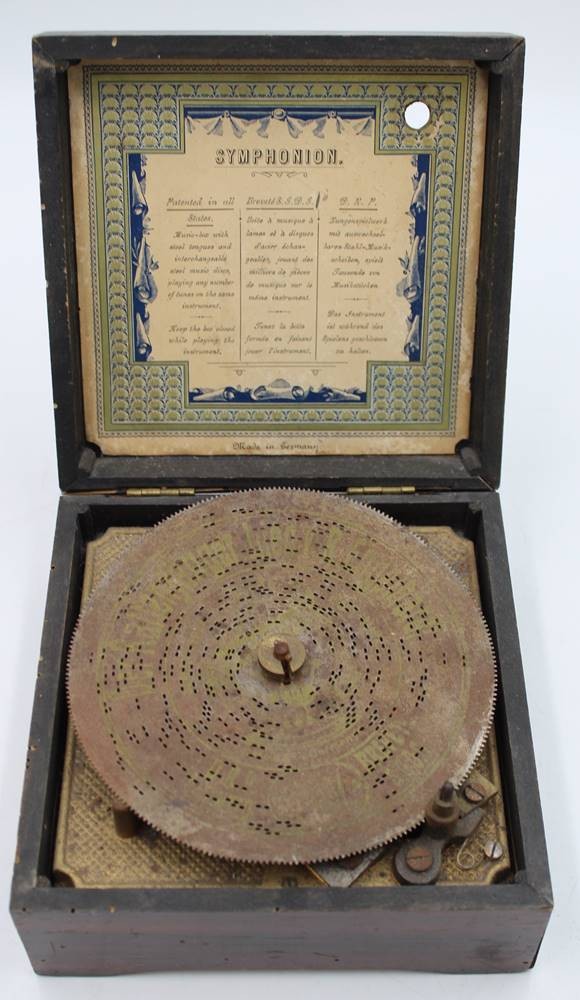 SYMPHONION.
Patented in all
States.
Music-box with
steel tongues and
interchangeable
steel music discs,
playing any number
of tunes on the same
instrument.
Keep the box closed
while playing the
instrument.
Breveté S. G. D. G.
Boîte à musique à
lames et à disques
d'acier échan-
geables, jouant des
milliers de pièces
de musique sur le
même instrument.
Tenez la boîte
fermée en faisant
jouer l'instrument.
D. R. P.
Zungenspielwerk
mit auswechsel-
baren Stahl-Musik-
scheiben, spielt
Tausende von
Musikstücken
Das Instrument
ist während des
Spielens geschlossen
zu halten.
Made in Germany